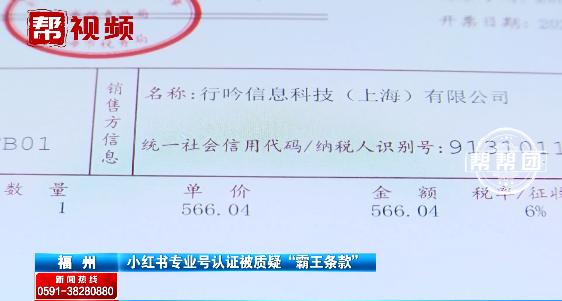 帮视频
开票日期:202
销售方信息
名称:行吟信息科技(上海)有限公司
B01
统一社会信用代码/纳税人识别号:9131011
帮帮团
数量 单价 金额 税率/征收
1 566.04 566.04 6%
福州 小红书专业号认证被质疑“霸王条款”
新闻热线
0591-38280880